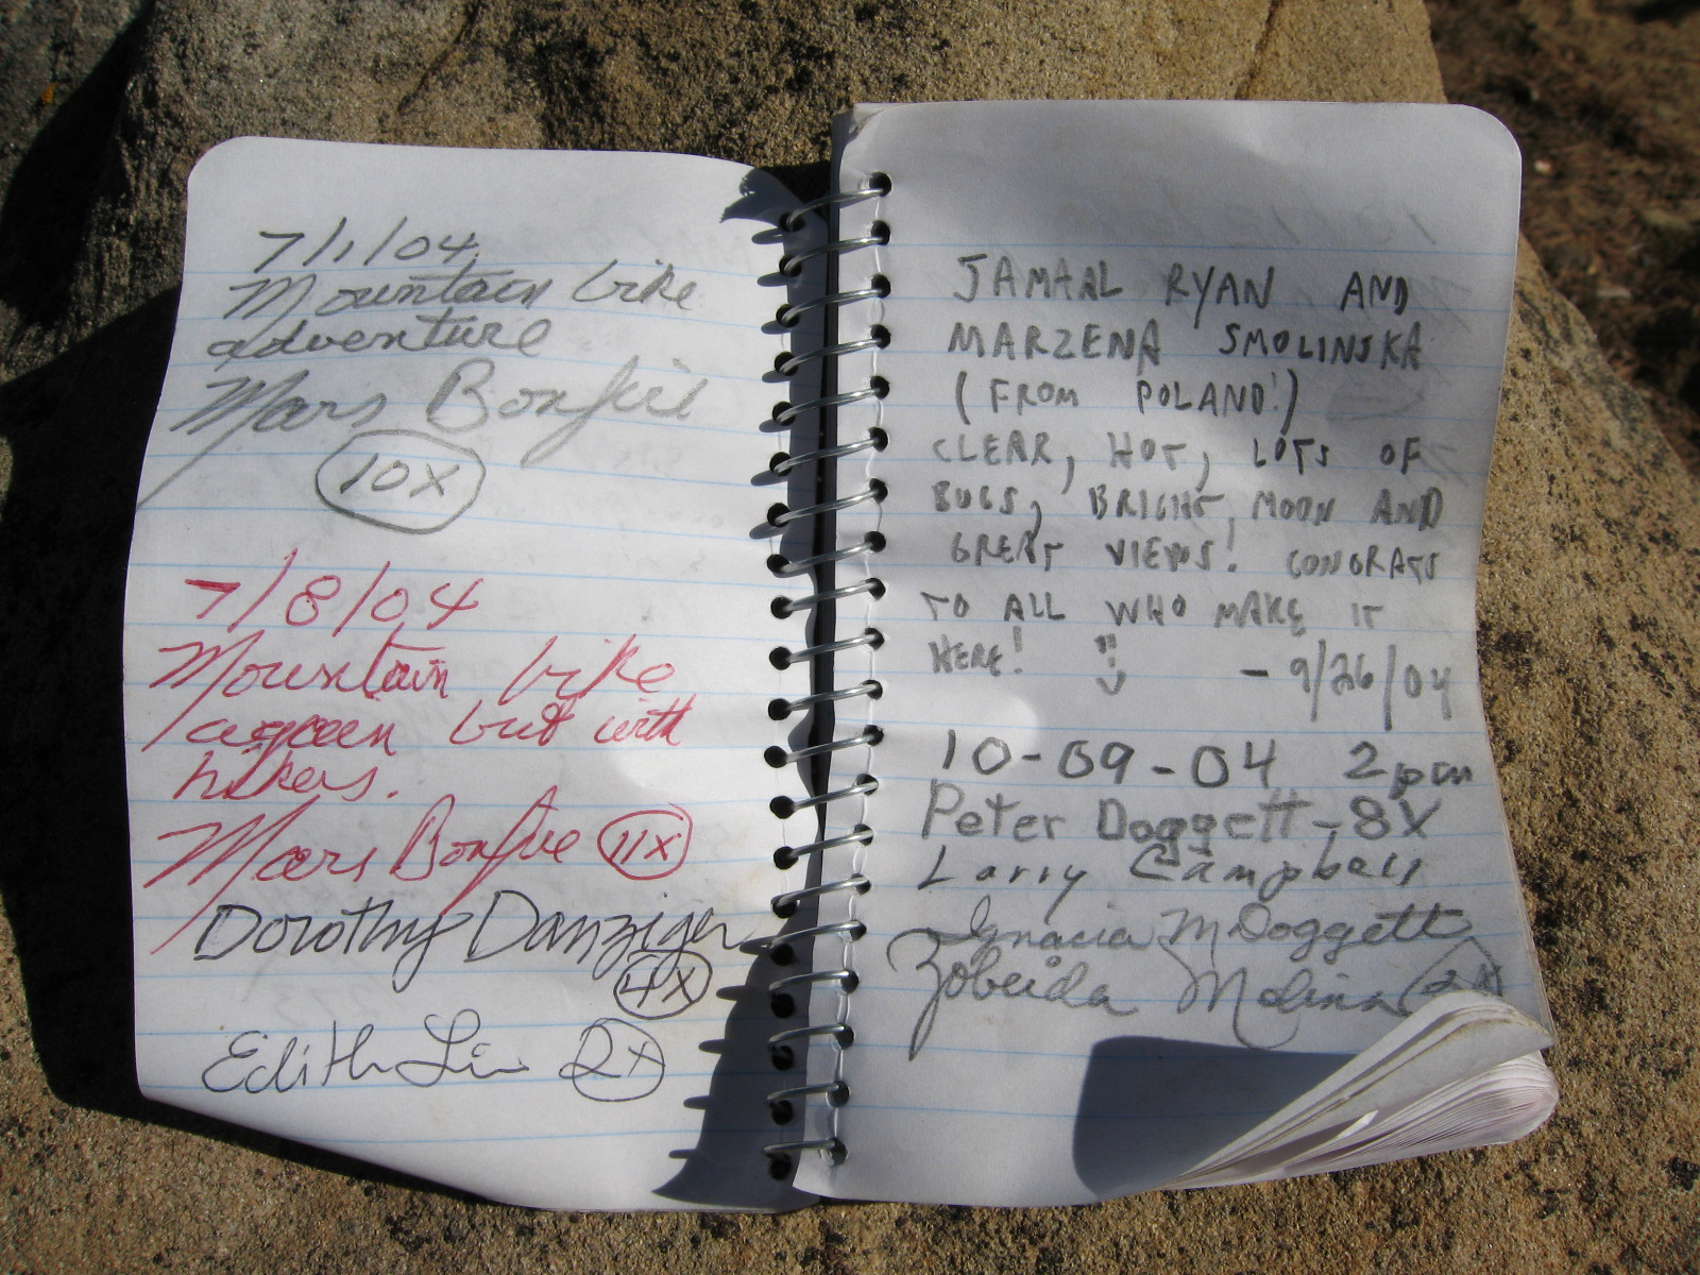 7/1/04
Mountain bike
adventure
Mars Bonfire
10X
7/8/04
Mountain bike
again but with
hikers.
Mars Bonfire 11X
Dorothy Danziger
4X
Edith Liu 2X
JAMAAL RYAN AND
MARZENA SMOLINSKA
(FROM POLAND!)
CLEAR, HOT, LOTS OF
BUGS, BRIGHT, MOON AND
GREAT VIEWS! CONGRATS
TO ALL WHO MAKE IT
HERE! - 9/26/04
10-09-04 2pm
Peter Doggett - 8X
Larry Campbell
Ignacia M Doggett
Zobeida Molina 2X